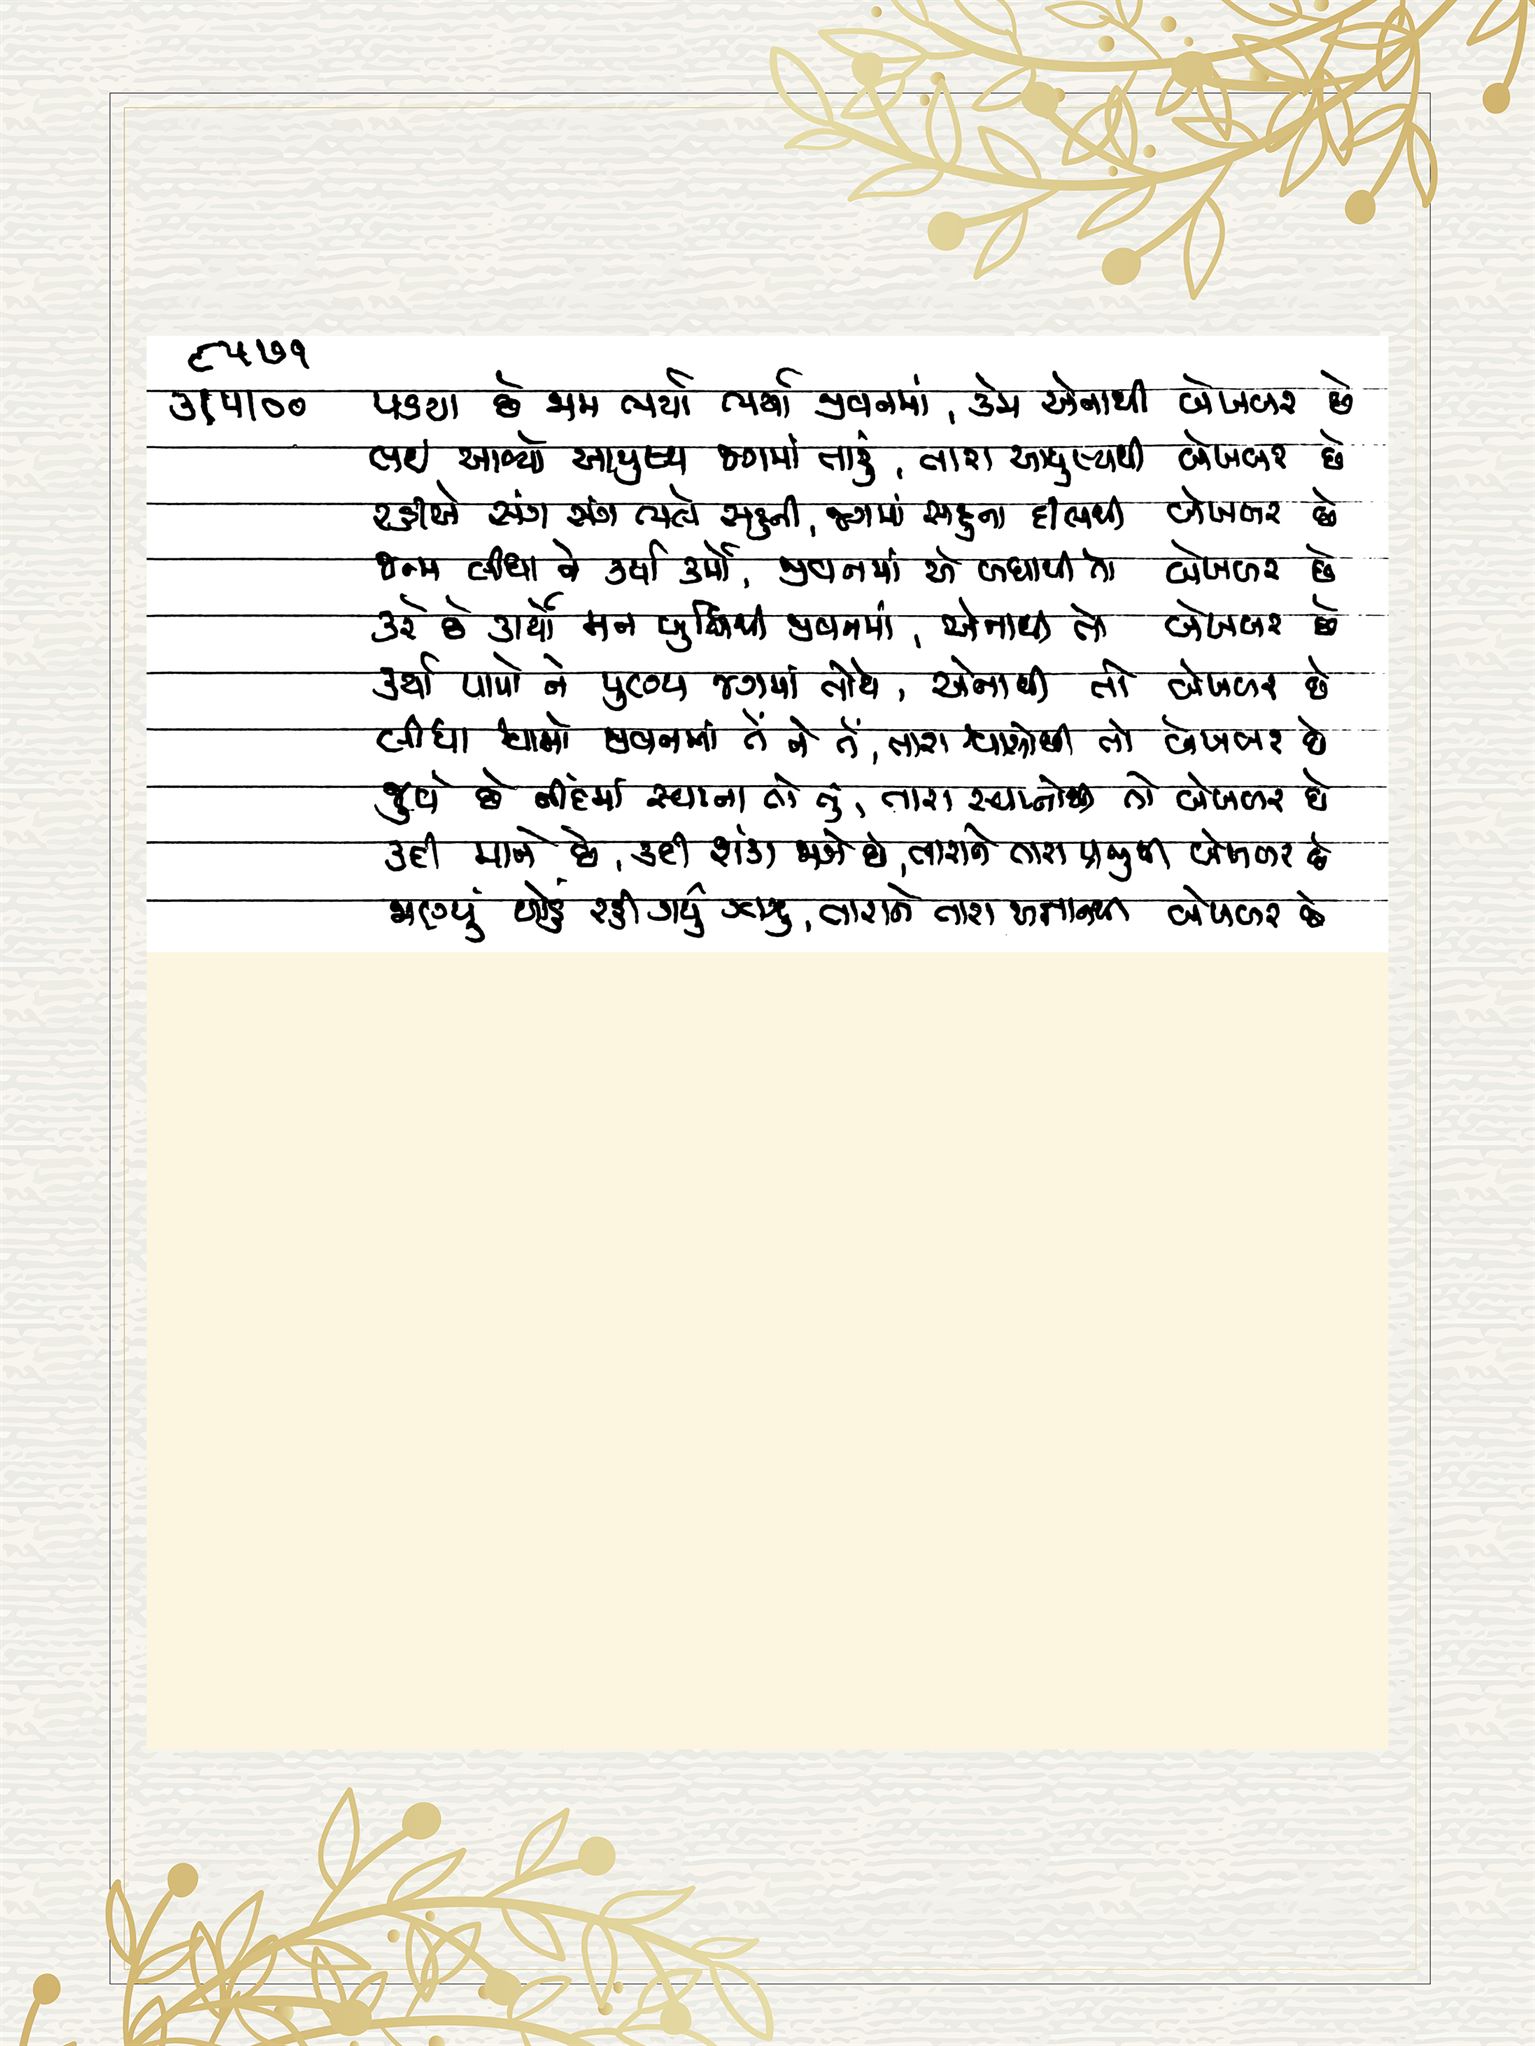 ૯૫૭૧
૩/૫/૦૦ પડયા છે ભ્રમ ત્યાં ત્યાં જીવનમાં, કેમ એનાથી બેખબર છે
લઈ આવ્યો આયુષ્ય જગમાં તારું, તારા આયુષ્યથી બેખબર છે
રહીએ સંગ સંગ સહુની, જગમાં સહુના દીલથી બેખબર છે
જન્મ લીધા ને કર્યા કર્મો, જીવનમાં એ બધાથી તો બેખબર છે
કરે છે કાર્યો મન બુદ્ધિથી જીવનમાં, એનાથી તો બેખબર છે
કર્યા પાપો ને પુણ્ય જગમાં તોયે, એનાથી તો બેખબર છે
લીધા શ્વાસો જીવનમાં તેં ને તેં, તારા શ્વાસોથી તો બેખબર છે
જુવે છે નીંદમાં સ્વપ્ના તો તું, તારા સ્વપ્નોથી તો બેખબર છે
કદી માને છે, કદી શંકા છે, તારાને તારા પ્રભુથી બેખબર છે
ભણ્યું થોડું રહી ગયું ઝાઝું, તારાને તારા અજ્ઞાનથી બેખબર છે